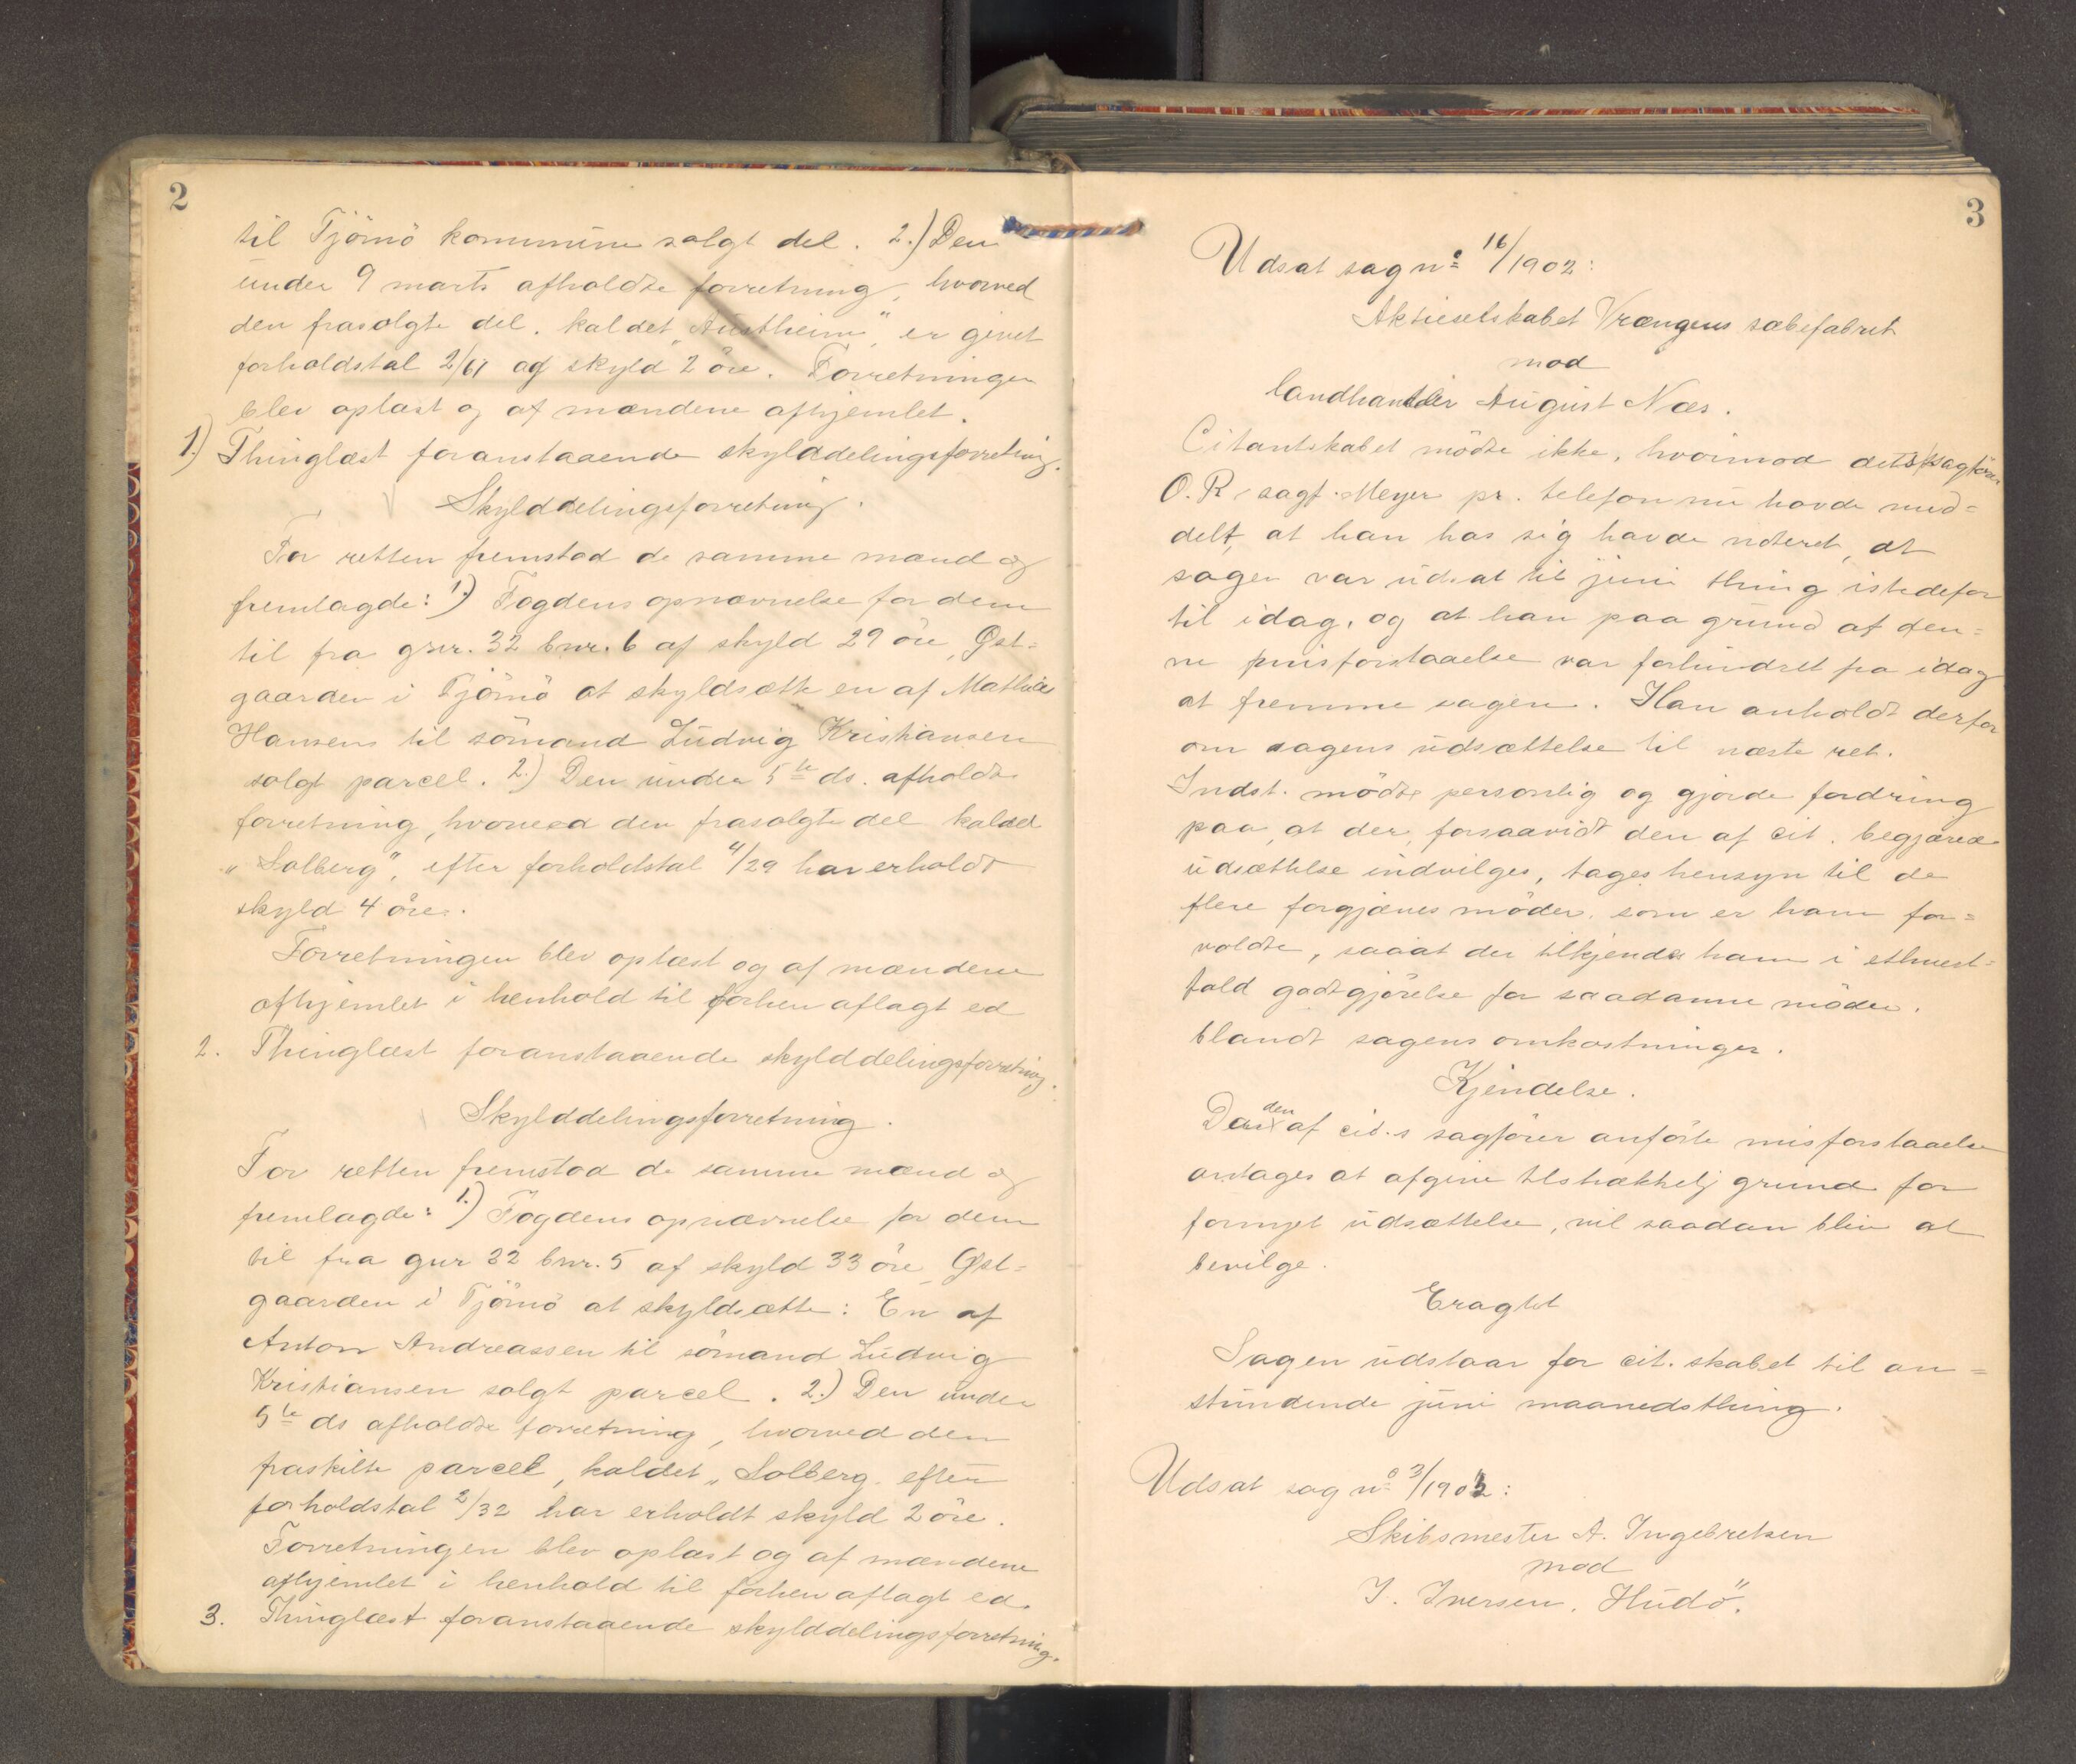 2
til Tjömö kommune solgt del. 2.) Den
under 9 marts afholdte forretning, hvorved
den frasolgte del, kaldet „Austheim", er givet
forholdstal 2/61 og skyld 2 öre. Forretningen
blev oplæst og af mændene afhjemlet.
1.) Thinglæst foranstaaende skylddelingsforretning.
Skylddelingsforretning.
For retten fremstod de samme mænd og
fremlagde: 1.) Fogdens opnævnelse for dem
til fra gnr. 32 bnr. 6 af skyld 29 öre, Øst-
gaarden i Tjömö at skyldsætte en af Mathias
Hansen til sömand Ludvig Kristiansen
solgt parcel. 2.) Den under 5te ds. afholdte
forretning, hvorved den frasolgte del kaldet
„Solberg", efter forholdstal 4/29 har erholdt
skyld 4 öre.
Forretningen blev oplæst og af mændene
afhjemlet i henhold til forhen aflagt ed
2. Thinglæst foranstaaende skylddelingsforretning.
Skylddelingsforretning.
For retten fremstod de samme mænd og
fremlagde: 1.) Fogdens opnævnelse for dem
til fra gnr 32 bnr. 5 af skyld 33 öre, Øst-
gaarden i Tjömö at skyldsætte: En af
Anton Andreassen til sömand Ludvig
Kristiansen solgt parcel. 2.) Den under
5te ds afholdte forretning, hvorved den
fraskilte parcel, kaldet „Solberg" efter
forholdstal 2/32 har erholdt skyld 2 öre.
Forretningen blev oplæst og af mændene
afhjemlet i henhold til forhen aflagt ed.
3. Thinglæst foranstaaende skylddelingsforretning.
3
Udsat sag no 16/1902:
Aktieselskabet Vrængens sæbefabrik
mod
landhandler August Næs.
Citantskabet mödte ikke, hvorimod dets sagförer
O.R. sagf. Meyer pr. telefon nu havde med-
delt, at han hos sig havde noteret, at
sagen var udsat til juni thing istedefor
til idag, og at han paa grund af den-
ne misforstaaelse var forhindret fra idag
at fremme sagen. Han anholdt derfor
om sagens udsættelse til næste ret.
Indst. mödte personlig og gjorde fordring
paa, at der, forsaavidt den af cit. begjærede
udsættelse indvilges, tages hensyn til de
flere forgjæves möder, som er ham for-
voldte, saaat der tilkjendes ham i ethvert-
fald godtgjörelse for saadanne möder,
blandt sagens omkostninger.
Kjendelse.
Da den af cit.s sagförer anförte misforstaaelse
antages at afgive tilstrækkelig grund for
fornyet udsættelse, vil saadan blive at
bevilge.
Eragtet
Sagen udstaar for cit.skabet til an-
stundende juni maanedsthing.
Udsat sag no 3/1903:
Skibsmester A. Ingebretsen
mod
I. Iversen, Hudö.